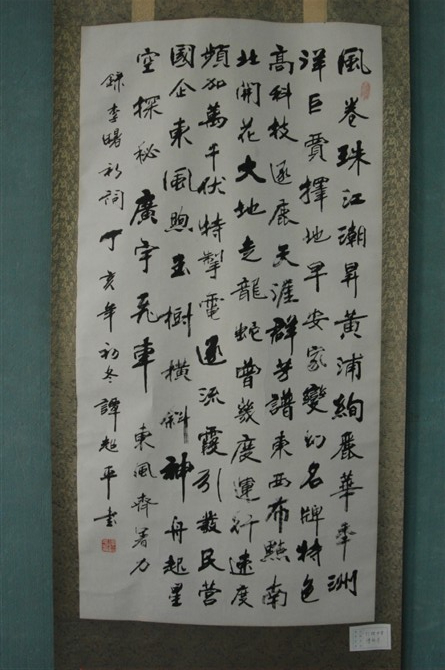 風卷珠江潮昇黃浦絢麗華年洲
洋巨賈擇地早安家變幻名牌特色
高科技逐鹿天涯群芳譜東西布點南
北開花大地走龍蛇曾幾度運行速度
頻加萬千伏特掣電逐流霞引發民營
國企東風煦玉樹橫斜神舟起星
空探秘廣宇飛車東風齊著力
錄李曙初詞丁亥年初冬譚超平書